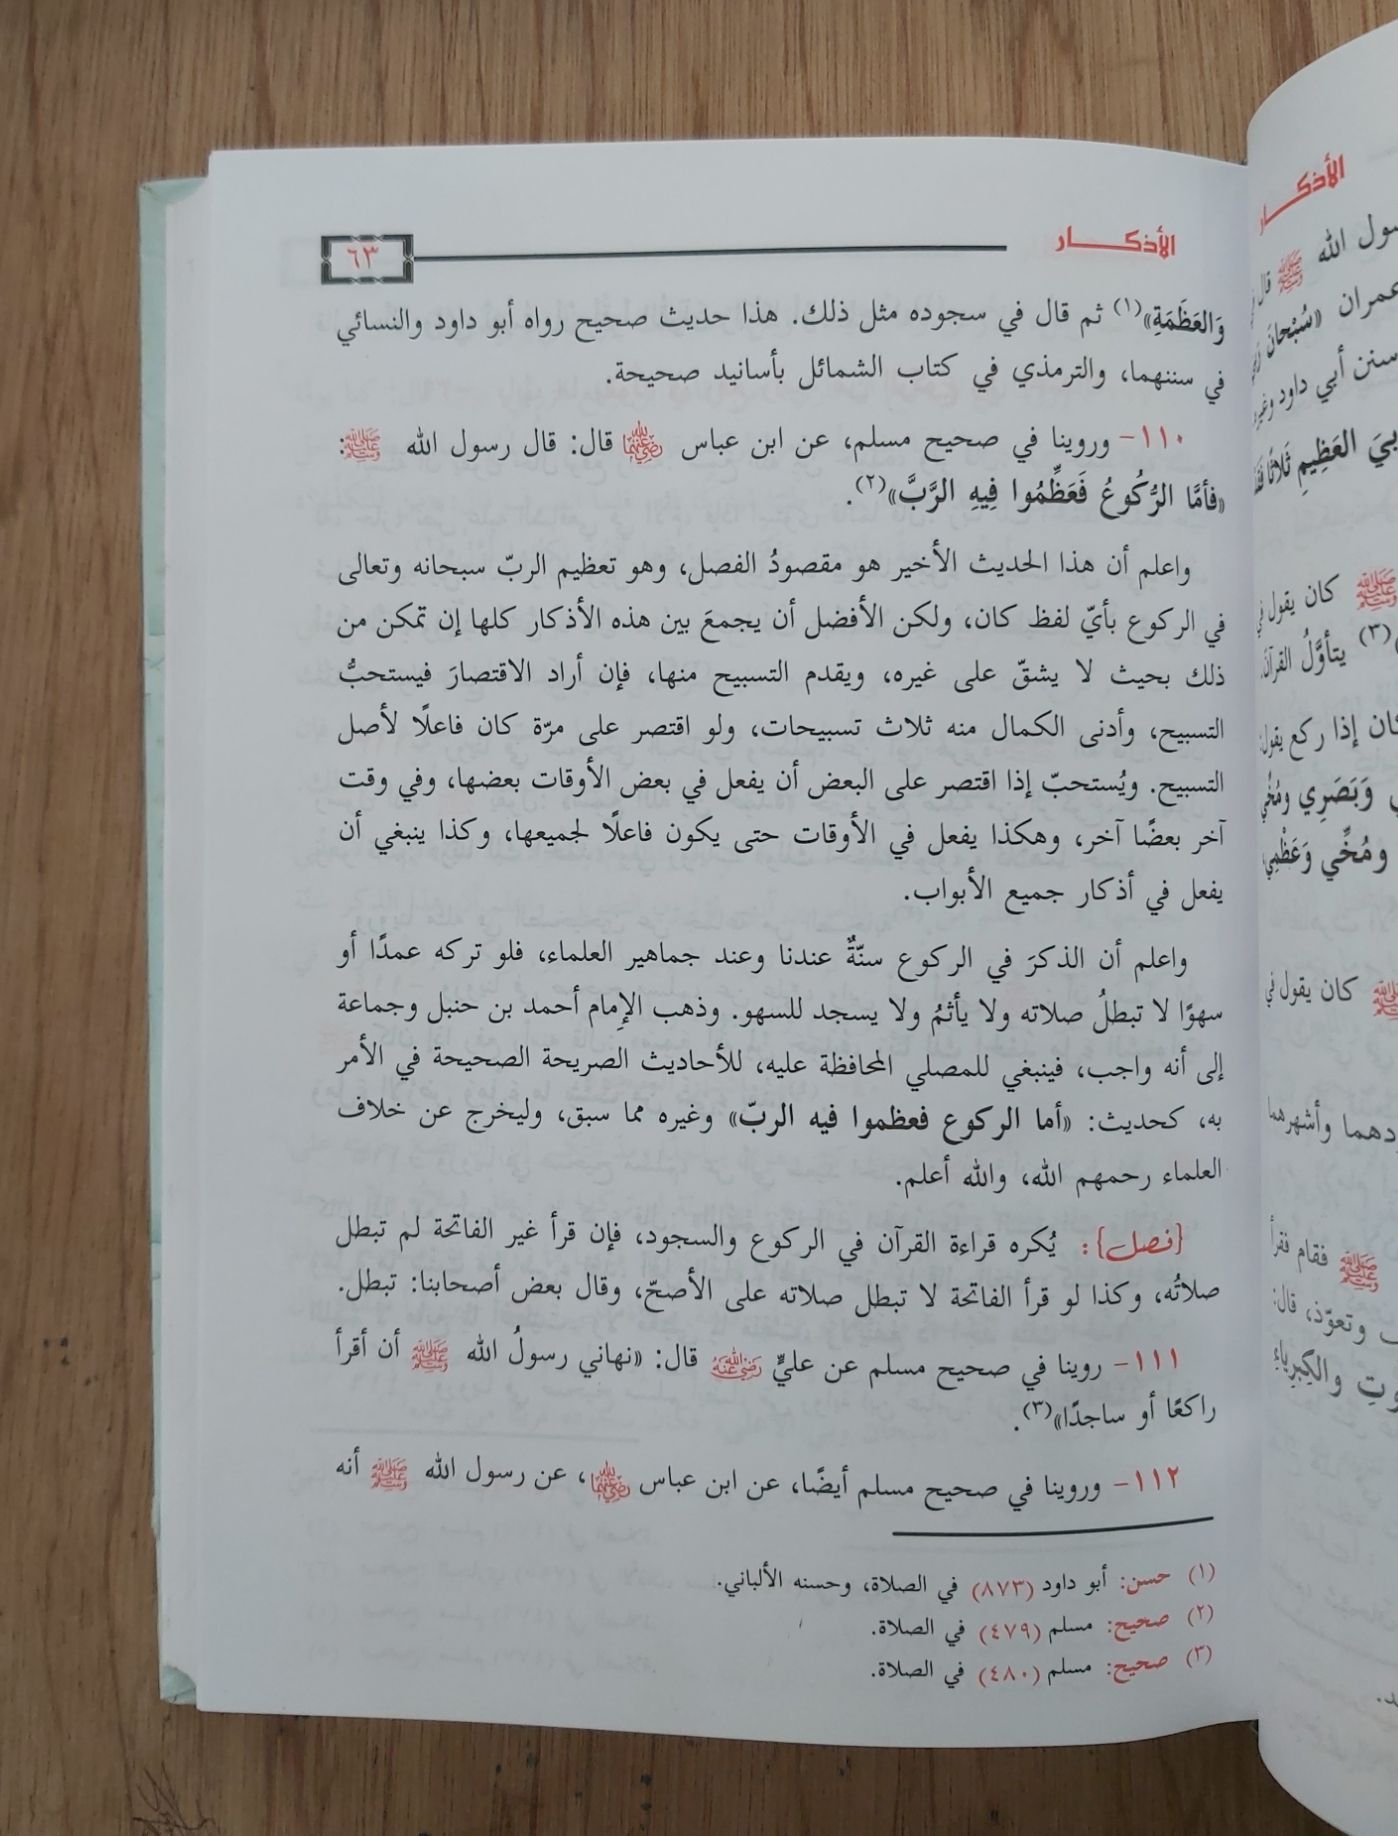 الأذكـــــار
٦٣
وَالعَظَمَةِ»(١) ثم قال في سجوده مثل ذلك. هذا حديث صحيح رواه أبو داود والنسائي
في سننهما، والترمذي في كتاب الشمائل بأسانيد صحيحة.
١١٠- وروينا في صحيح مسلم، عن ابن عباس رضي الله عنهما قال: قال رسول الله ﷺ:
«فأمَّا الرُّكُوعُ فَعَظِّمُوا فِيهِ الرَّبَّ»(٢).
واعلم أن هذا الحديث الأخير هو مقصودُ الفصل، وهو تعظيم الربّ سبحانه وتعالى
في الركوع بأيّ لفظ كان، ولكن الأفضل أن يجمعَ بين هذه الأذكار كلها إن تمكن من
ذلك بحيث لا يشقّ على غيره، ويقدم التسبيح منها، فإن أراد الاقتصارَ فيستحبُّ
التسبيح، وأدنى الكمال منه ثلاث تسبيحات، ولو اقتصر على مرّة كان فاعلًا لأصل
التسبيح. ويُستحبّ إذا اقتصر على البعض أن يفعل في بعض الأوقات بعضها، وفي وقت
آخر بعضًا آخر، وهكذا يفعل في الأوقات حتى يكون فاعلًا لجميعها، وكذا ينبغي أن
يفعل في أذكار جميع الأبواب.
واعلم أن الذكرَ في الركوع سنّةٌ عندنا وعند جماهير العلماء، فلو تركه عمدًا أو
سهوًا لا تبطلُ صلاته ولا يأثمُ ولا يسجد للسهو. وذهب الإِمام أحمد بن حنبل وجماعة
إلى أنه واجب، فينبغي للمصلي المحافظة عليه، للأحاديث الصريحة الصحيحة في الأمر
به، كحديث: «أما الركوع فعظموا فيه الربّ» وغيره مما سبق، وليخرج عن خلاف
العلماء رحمهم الله، والله أعلم.
{فصل}: يُكره قراءة القرآن في الركوع والسجود، فإن قرأ غير الفاتحة لم تبطل
صلاتُه، وكذا لو قرأ الفاتحة لا تبطل صلاته على الأصحّ، وقال بعض أصحابنا: تبطل.
١١١- روينا في صحيح مسلم عن عليٍّ رضي الله عنه قال: «نهاني رسولُ الله ﷺ أن أقرأ
راكعًا أو ساجدًا»(٣).
١١٢- وروينا في صحيح مسلم أيضًا، عن ابن عباس رضي الله عنهما، عن رسول الله ﷺ أنه
(١) حسن: أبو داود (٨٧٣) في الصلاة، وحسنه الألباني.
(٢) صحيح: مسلم (٤٧٩) في الصلاة.
(٣) صحيح: مسلم (٤٨٠) في الصلاة.
الأذكـــار
سول الله ﷺ قال
عمران «سُبْحانَ
سنن أبي داود
العَظِيمِ ثَلاثًا
ﷺ كان يقول
(٣) يتأوَّلُ القرآن
كان إذا ركع يقول
وَبَصَرِي
ومُخِّي وَعَظْمِي
كان يقول في
وأشهرهما
ﷺ فقام فقرأ
وتعوّذ، قال:
والكِبرِياءِ